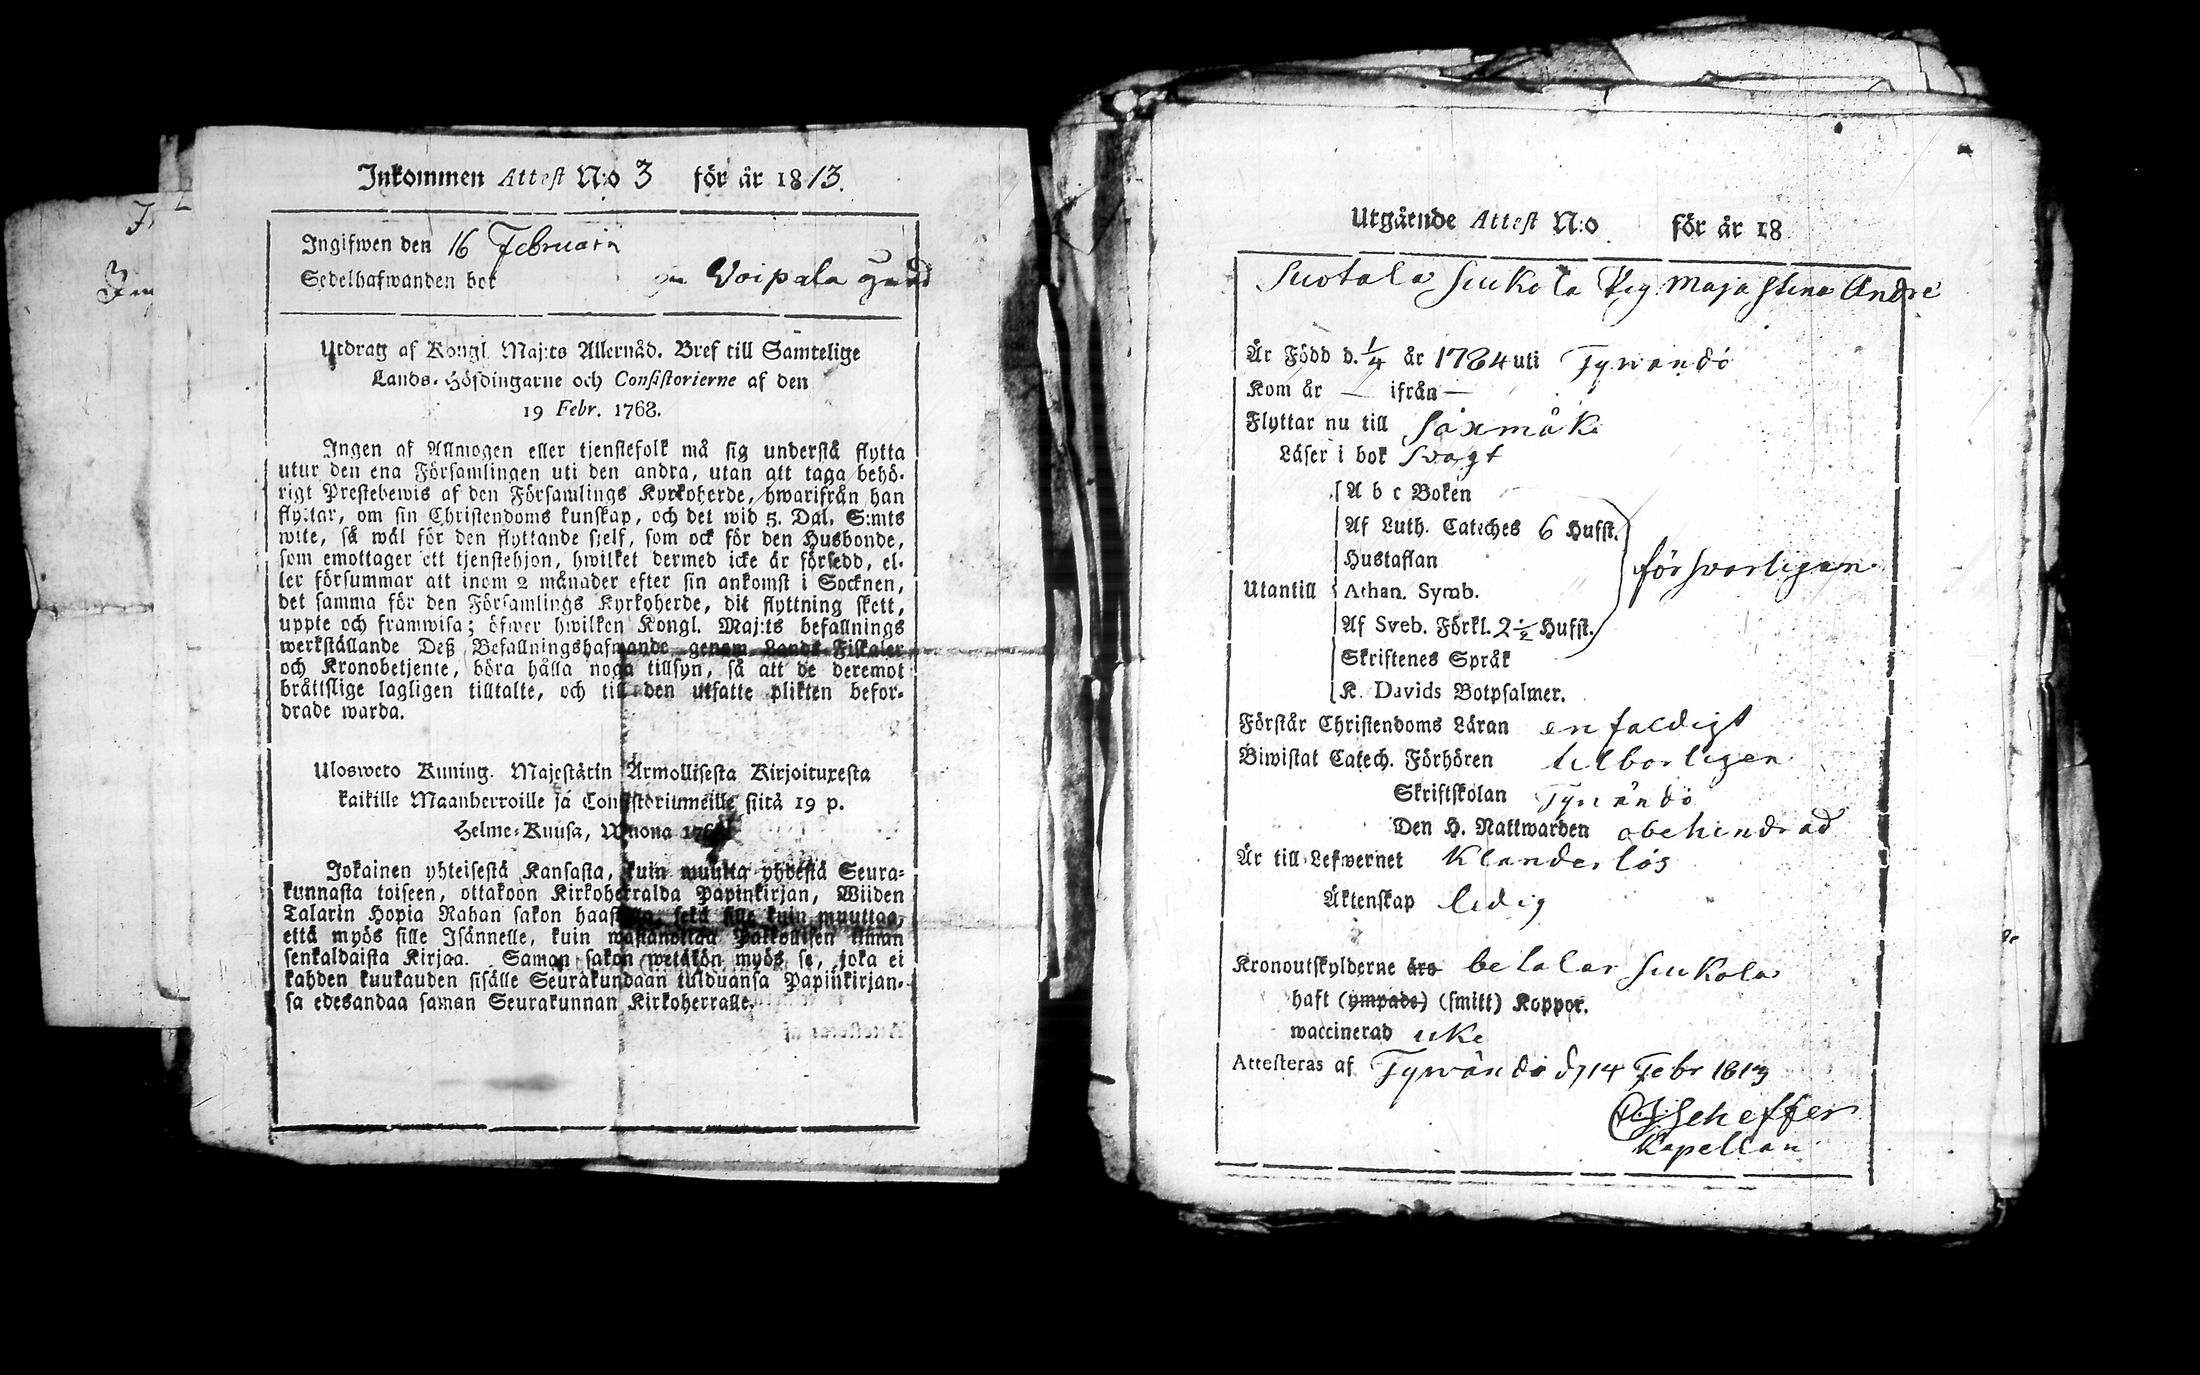 Inkommen Attest N:o 3 för år 1813.
Ingifwen den 16 Februarii
Sedelhafwanden bor på Voipala gård
Utdrag af Kongl. Maj:ts Allernåd. Bref till Samtelige
Lands-Höfdingarne och Consistorierne af den
19 Febr. 1768.
Ingen af Allmogen eller tjenstefolk må sig understå flytta
utur den ena Församlingen uti den andra, utan att taga behö-
rigt Prestebewis af den Församlings Kyrkoherde, hwarifrån han
flyttar, om sin Christendoms kunskap, och det wid 5. Dal. S:mts
wite, så wäl för den flyttande sjelf, som ock för den Husbonde,
som emottager ett tjenstehjon, hwilket dermed icke är försedd, el-
ler försummar att inom 2 månader efter sin ankomst i Socknen,
det samma för den Församlings Kyrkoherde, dit flyttning skett,
uppte och framwisa; öfwer hwilken Kongl. Maj:ts befallnings
werkställande Deß Befallningshafwande genom Lands Fiskaler
och Kronobetjente, böra hålla noga tillsyn, så att de deremot
bråttslige lagligen tilltalte, och till den utsatte plikten befor-
drade warda.
Ulosweto Kuning. Majestätin Armollisesta Kirjoituxesta
kaikille Maanherroille ja Consistoriumeille siitä 19 p.
Helme-Kuusa, Wuona 1768.
Jokainen yhteisestä Kansasta, kuin muutta yhdestä Seura-
kunnasta toiseen, ottakoon Kirkoherralda Papinkirjan, Wiiden
Talarin Hopia Rahan sakon haastolla, sekä sille kuin muuttaa,
että myös sille Isännelle, kuin wastanottaa Palkollisen ilman
senkaldaista Kirjaa. Saman sakon wetäkön myös se, joka ei
kahden kuukauden sisälle Seurakundaan tulduansa Papinkirjan-
sa edesandaa saman Seurakunnan Kirkoherralle.
Utgående Attest N:o för år 18
Suotala Seukola Pig. Maja Stina Andre
Är Född d. 1/4 år 1784 uti Tyrwändö
Kom år — ifrån —
Flyttar nu till Säxmäki
Läser i bok Svagt
A b c Boken
Af Luth. Cateches 6 Hufst.
Hustaflan
Utantill Athan. Symb. försvarligen
Af Sveb. Förkl. 2 1/2 Hufst.
Skriftenes Språk
K. Davids Botpsalmer.
Förstår Christendoms Läran enfaldigt
Biwistat Catech. Förhören tilborligen
Skriftskolan Tyrvändö
Den H. Nattwarden obehindrad
Är till Lefwernet Klanderlös
Äktenskap ledig
Kronoutskylderne äro betalar Seukola
haft (ympade) (smitt) Koppor.
waccinerad icke
Attesteras af Tyrwändö d. 14 Febr 1813
Scheffer
Kapellan